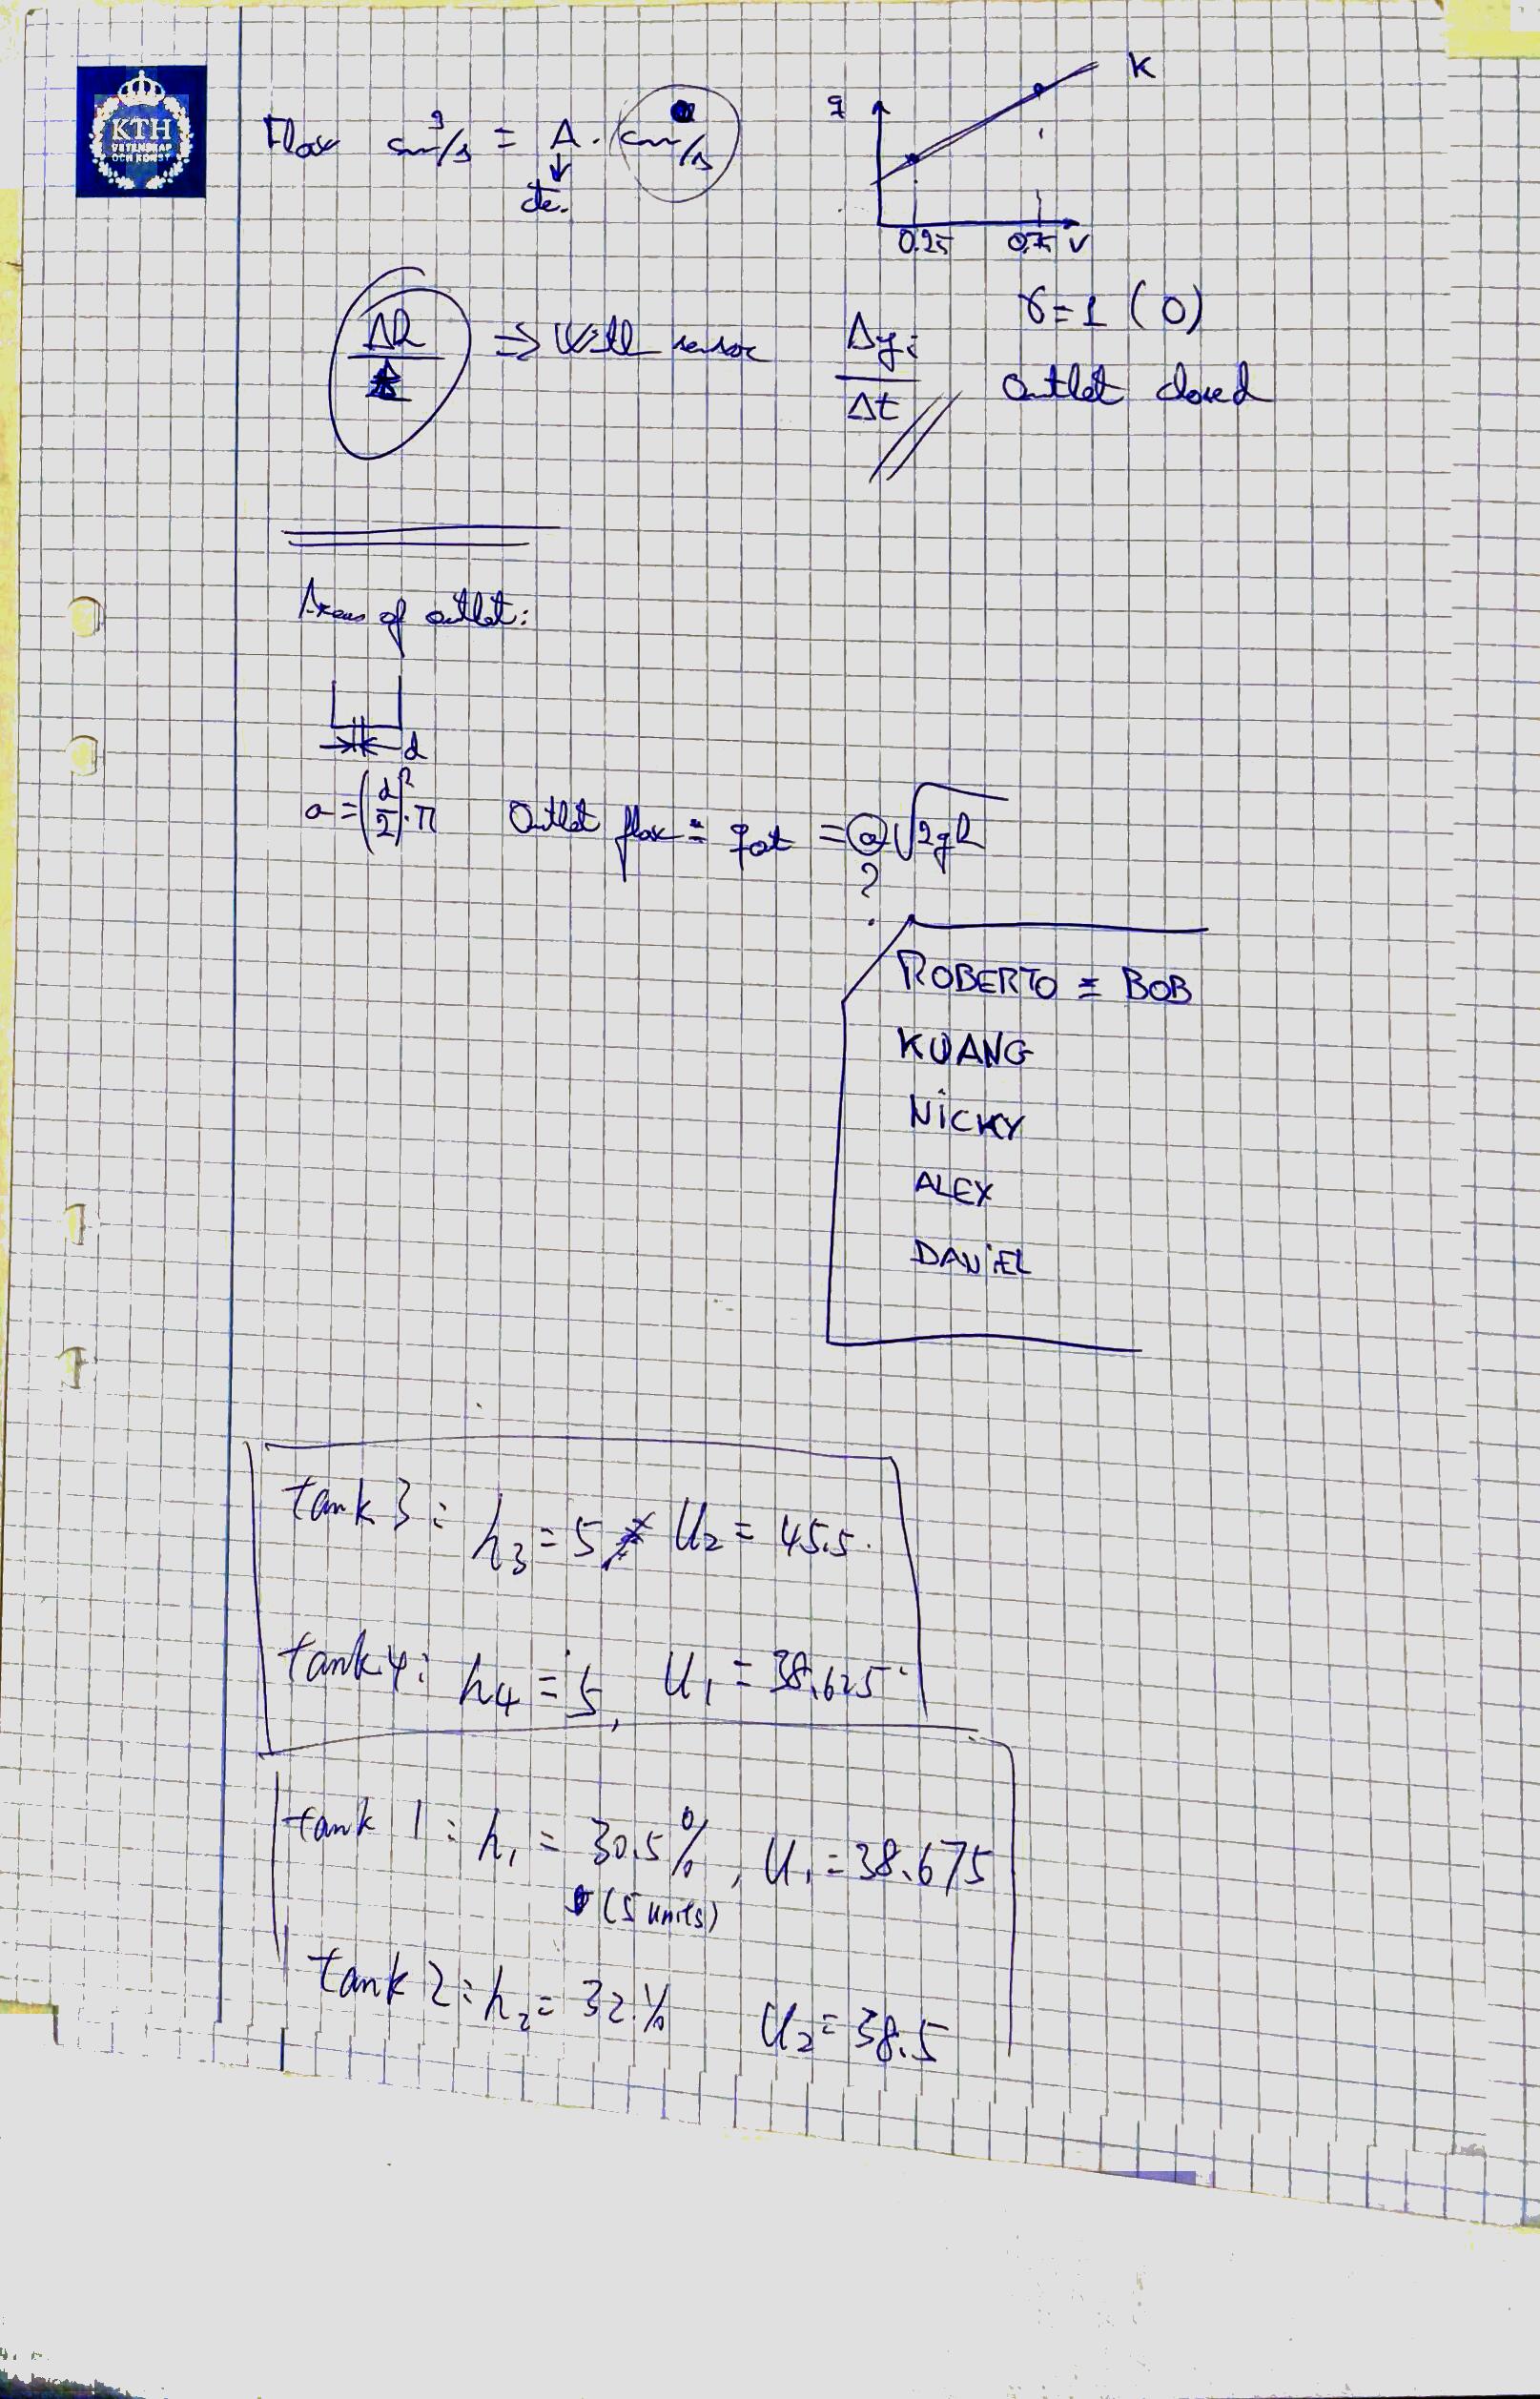 KTH
VETENSKAP
OCH KONST
Flow cm³/s = A · cm/s
↓
cte.
q
K
0.25 0.75 V
Δh ⇒ With sensor Δyi
Δt
γ=1 (0)
Outlet closed
Areas of outlet:
d
a = (d/2)² · π Outlet flow = qout = a √2gh
?
ROBERTO = BOB
KUANG
NICKY
ALEX
DANIEL
tank 3: h₃ = 5 U₂ = 45.5.
tank 4: h₄ = 5, U₁ = 38.625
tank 1: h₁ = 30.5%, U₁ = 38.675
(5 units)
tank 2: h₂ = 32% U₂ = 38.5